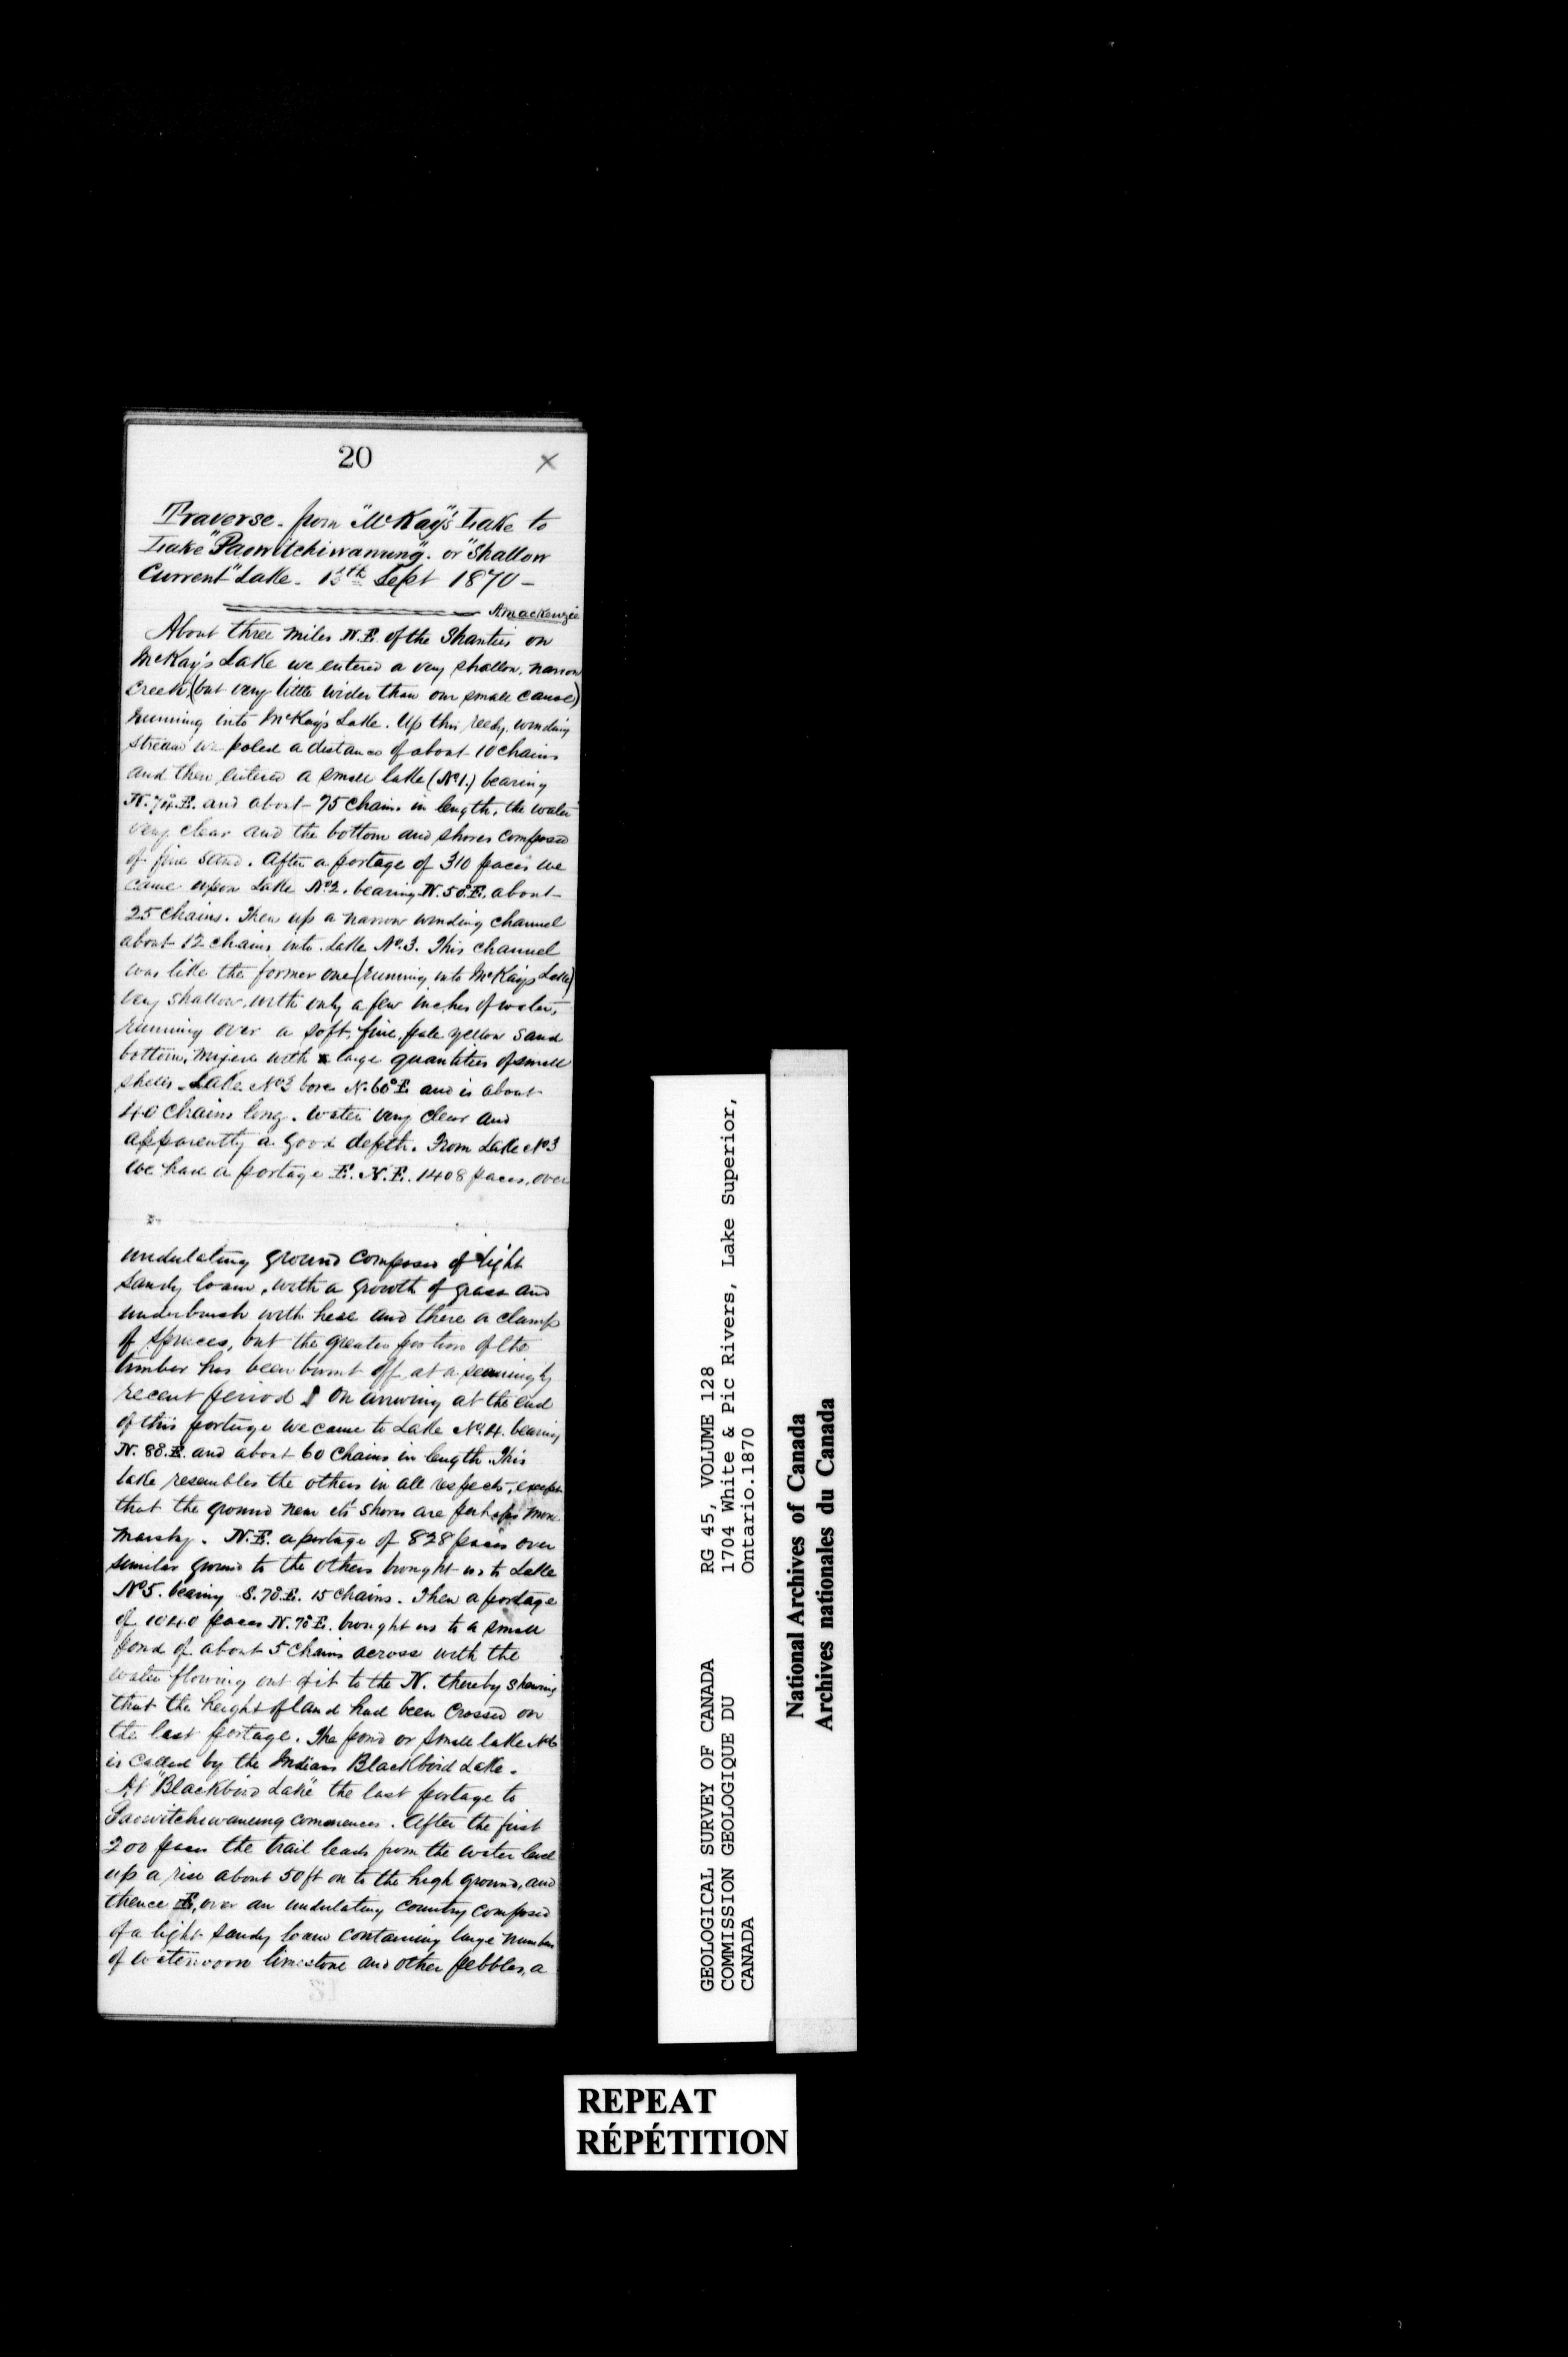 20
Traverse - from "McKay's" Lake to
Lake "Paowitchiwanung". or "Shallow
Current" Lake - 13th Sept 1870 -
A Mackenzie
About three miles N.E. of the Shanties on
McKay's Lake we entered a very shallow, narrow
creek, (but very little wider than our small canoe)
running into McKay's Lake. Up this reedy, winding
stream we poled a distance of about 10 chains
and then entered a small lake (No 1.) bearing
N. 74°. E. and about 75 chains in length, the water
very clear and the bottom and shores composed
of fine sand. After a portage of 310 paces we
came upon Lake No 2. bearing N. 50°. E. about
25 chains. Then up a narrow winding channel
about 12 chains into Lake No. 3. This channel
was like the former one (running into McKay's Lake)
very shallow, with only a few inches of water,
running over a soft, fine, pale yellow sand
bottom, mixed with large quantities of small
shells. Lake No 3 bore N. 60° E. and is about
40 chains long. Water very clear and
apparently a good depth. From Lake No 3
we have a portage E. N. E. 1408 paces, over
undulating ground composed of light
sandy loam, with a growth of grass and
underbrush with here and there a clump
of spruces, but the greater portion of the
timber has been burnt off at a seemingly
recent period. On arriving at the end
of this portage we came to Lake No. 4. bearing
N. 88°. E. and about 60 chains in length. This
lake resembles the others in all respects, except
that the ground near its shores are perhaps more
marshy. N.E. a portage of 828 paces over
similar ground to the others brought us to Lake
No 5. bearing S. 70°. E. 15 chains. Then a portage
of 1040 paces N. 70° E. brought us to a small
pond of about 5 chains across with the
water flowing out of it to the N. thereby shewing
that the height of land had been crossed on
the last portage. The pond or small lake No 6
is called by the Indians Blackbird Lake.
At "Blackbird Lake" the last portage to
Paowitchiwanung commences. After the first
200 paces the trail leads from the water level
up a rise about 50 ft on to the high ground, and
thence E, over an undulating country composed
of a light sandy loam containing large numbers
of waterworn limestone and other pebbles, a
GEOLOGICAL SURVEY OF CANADA
COMMISSION GEOLOGIQUE DU
CANADA
RG 45, VOLUME 128
1704 White & Pic Rivers, Lake Superior,
Ontario.1870
National Archives of Canada
Archives nationales du Canada
REPEAT
RÉPÉTITION